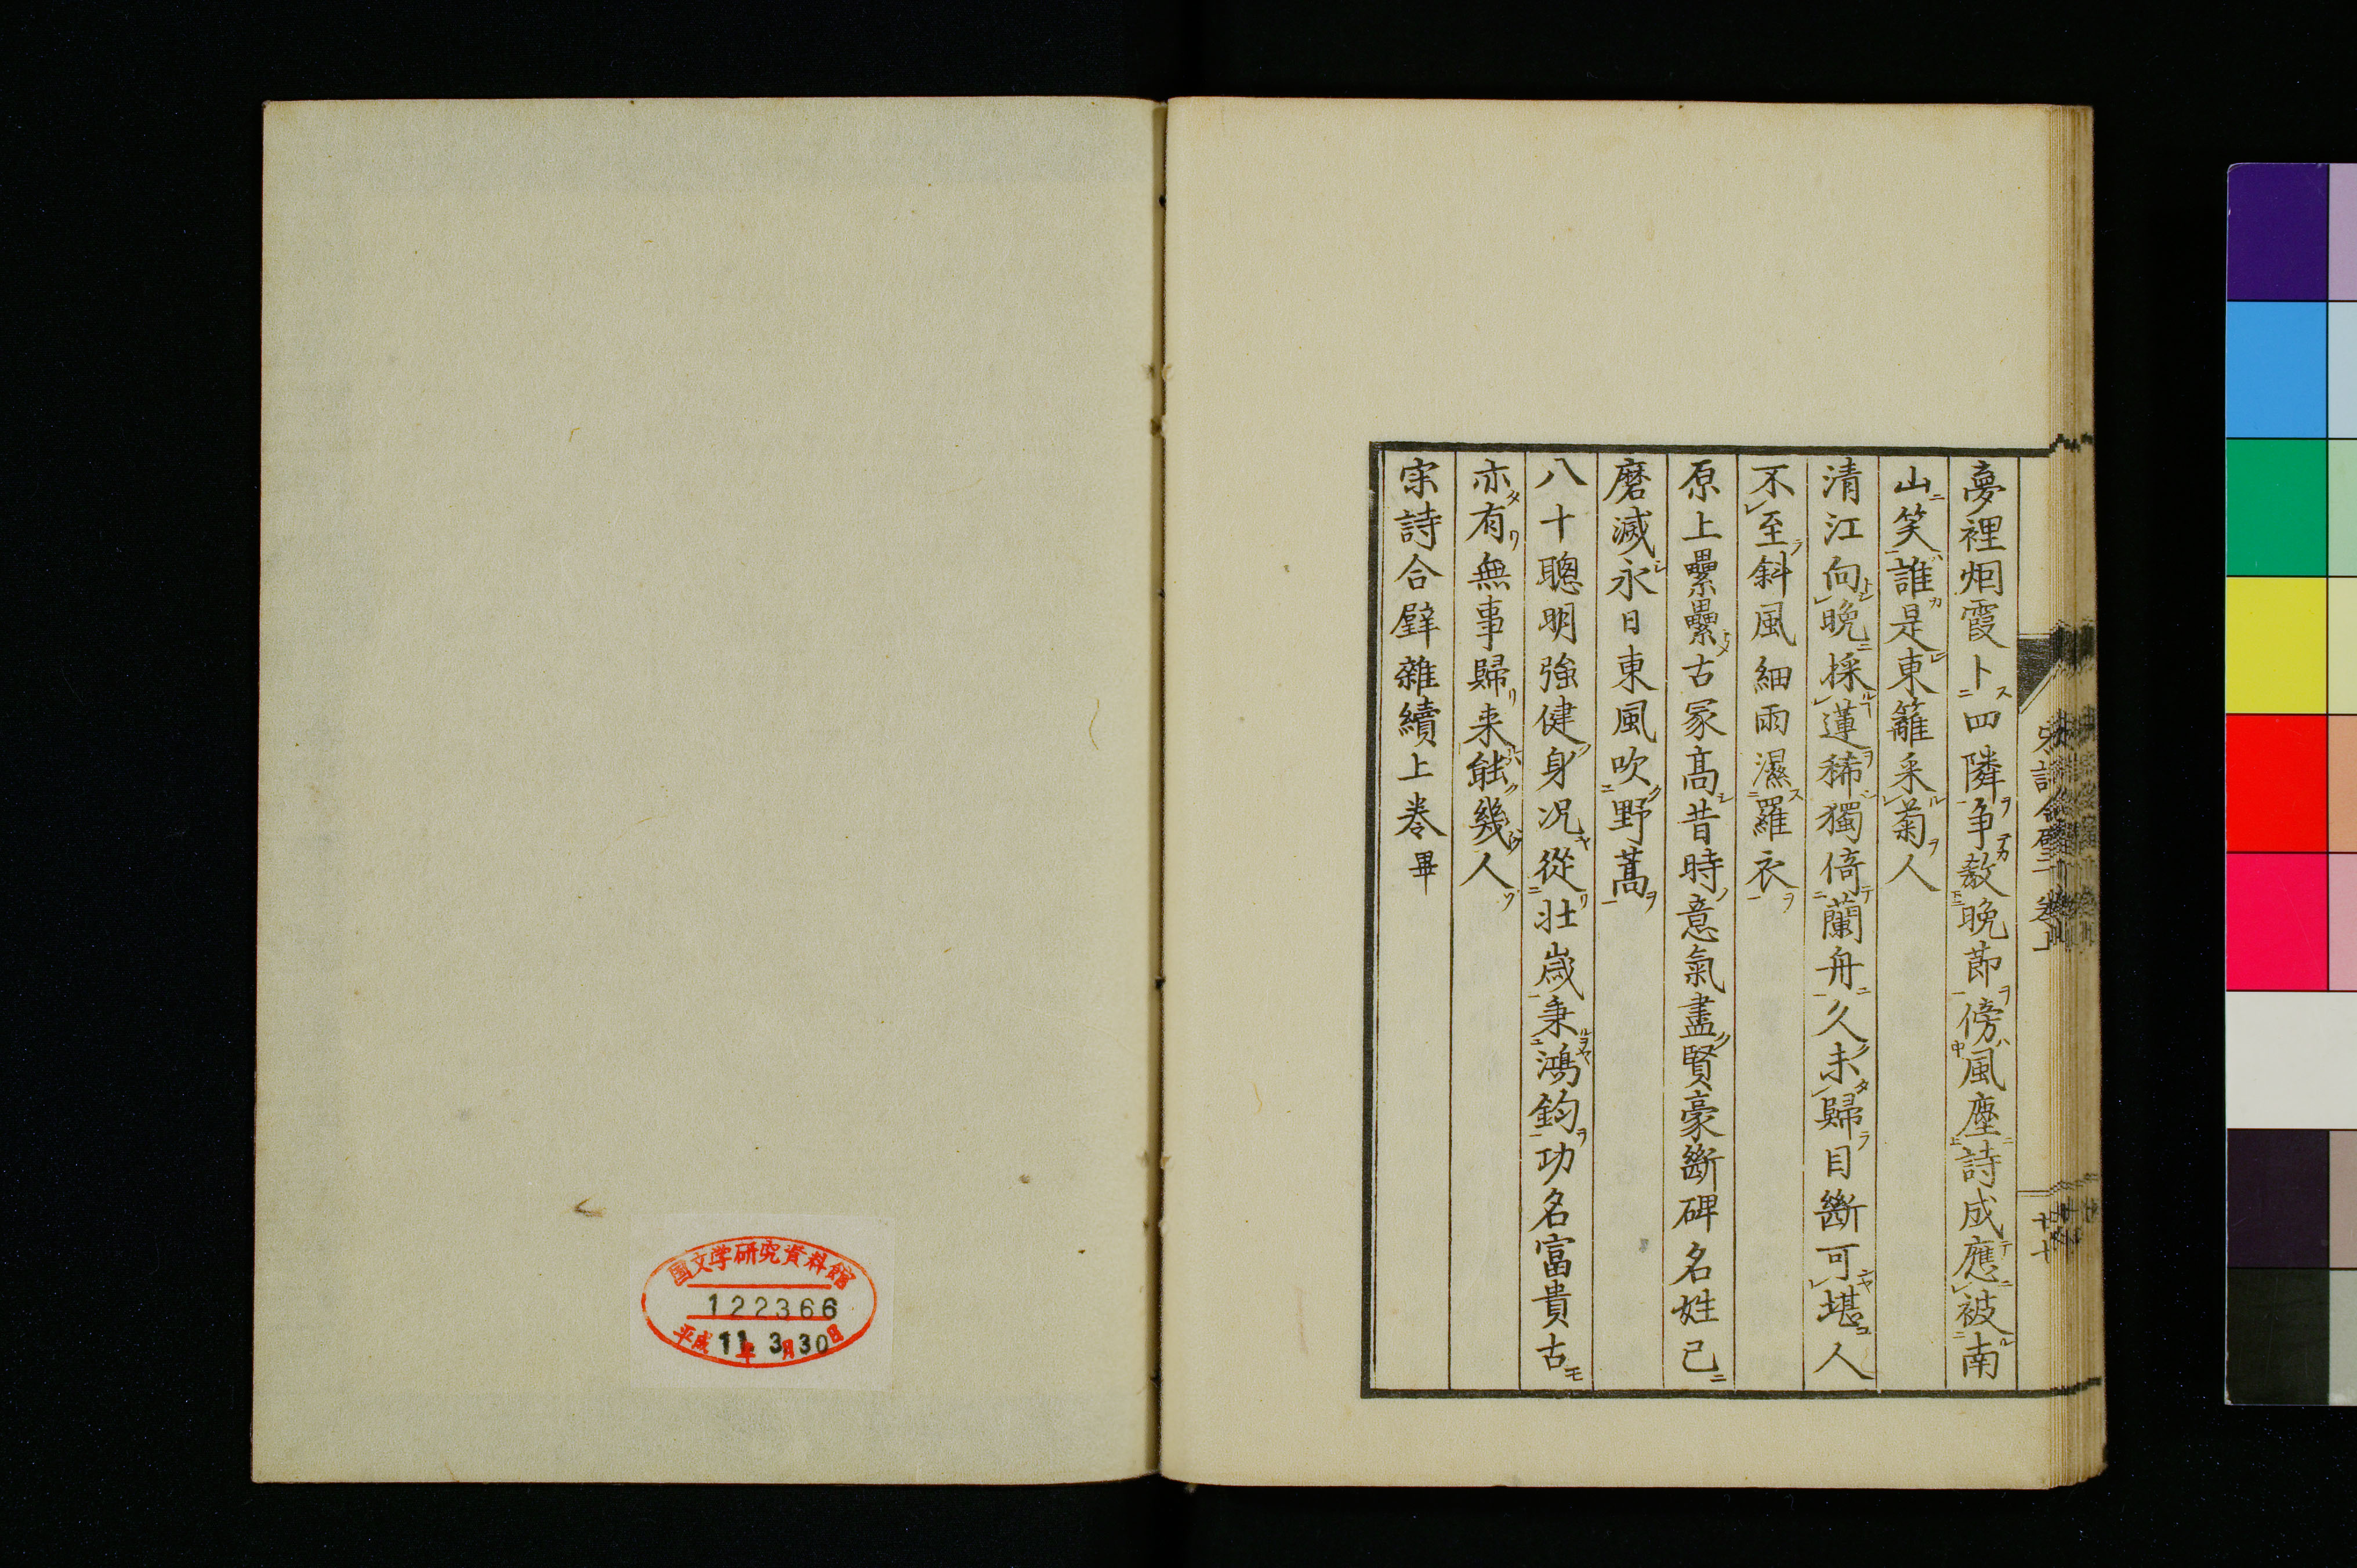 夢裡烟霞卜四隣爭教晩莭傍風塵詩成應被南
山笑誰是東籬采菊人
清江向晩採蓮稀獨倚蘭舟久未歸目斷可堪人
不至斜風細雨濕羅衣
原上纍纍古冢髙昔時意氣盡賢豪斷碑名姓已
磨滅永日東風吹野蒿
八十聰明強健身况從壮嵗秉鴻鈞功名富貴古
亦有無事歸来能幾人
宗詩合璧雜續上巻畢
国文学研究資料館
122366
平成11年3月30日